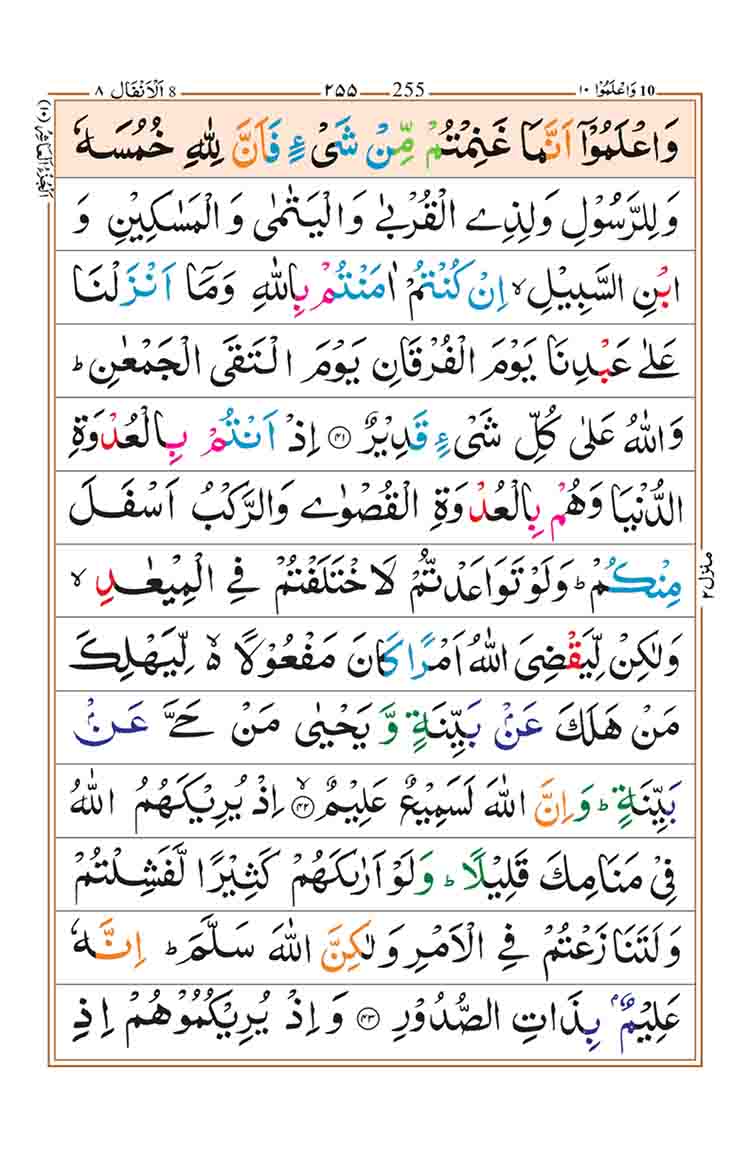 8 اَلْاَنْفَال ۸ ۲۵۵ 255 10 وَاعْلَمُوْا ۱۰
اَلْجُزْءُ الْعَاشِرُ (۱۰)
وَاعْلَمُوْۤا اَنَّمَا غَنِمْتُمْ مِّنْ شَیْءٍ فَاَنَّ لِلّٰهِ خُمُسَهٗ
وَلِلرَّسُوْلِ وَلِذِی الْقُرْبٰی وَالْیَتٰمٰی وَالْمَسٰكِیْنِ وَ
ابْنِ السَّبِیْلِ ۙ اِنْ كُنْتُمْ اٰمَنْتُمْ بِاللّٰهِ وَمَاۤ اَنْزَلْنَا
عَلٰی عَبْدِنَا یَوْمَ الْفُرْقَانِ یَوْمَ الْتَقَی الْجَمْعٰنِ ؕ
وَاللّٰهُ عَلٰی كُلِّ شَیْءٍ قَدِیْرٌ ﴿۴۱﴾ اِذْ اَنْتُمْ بِالْعُدْوَةِ
الدُّنْیَا وَهُمْ بِالْعُدْوَةِ الْقُصْوٰی وَالرَّكْبُ اَسْفَلَ
مِنْكُمْ ؕ وَلَوْ تَوَاعَدْتُّمْ لَاخْتَلَفْتُمْ فِی الْمِیْعٰدِ ۙ
وَلٰكِنْ لِّیَقْضِیَ اللّٰهُ اَمْرًا كَانَ مَفْعُوْلًا ۙ۬ لِّیَهْلِكَ
مَنْ هَلَكَ عَنْۢ بَیِّنَةٍ وَّ یَحْیٰی مَنْ حَیَّ عَنْۢ
بَیِّنَةٍ ؕ وَاِنَّ اللّٰهَ لَسَمِیْعٌ عَلِیْمٌ ﴿ۙ۴۲﴾ اِذْ یُرِیْكَهُمُ اللّٰهُ
فِیْ مَنَامِكَ قَلِیْلًا ؕ وَلَوْ اَرٰىكَهُمْ كَثِیْرًا لَّفَشِلْتُمْ
وَلَتَنَازَعْتُمْ فِی الْاَمْرِ وَلٰكِنَّ اللّٰهَ سَلَّمَ ؕ اِنَّهٗ
عَلِیْمٌۢ بِذَاتِ الصُّدُوْرِ ﴿۴۳﴾ وَاِذْ یُرِیْكُمُوْهُمْ اِذِ
منزل ۲